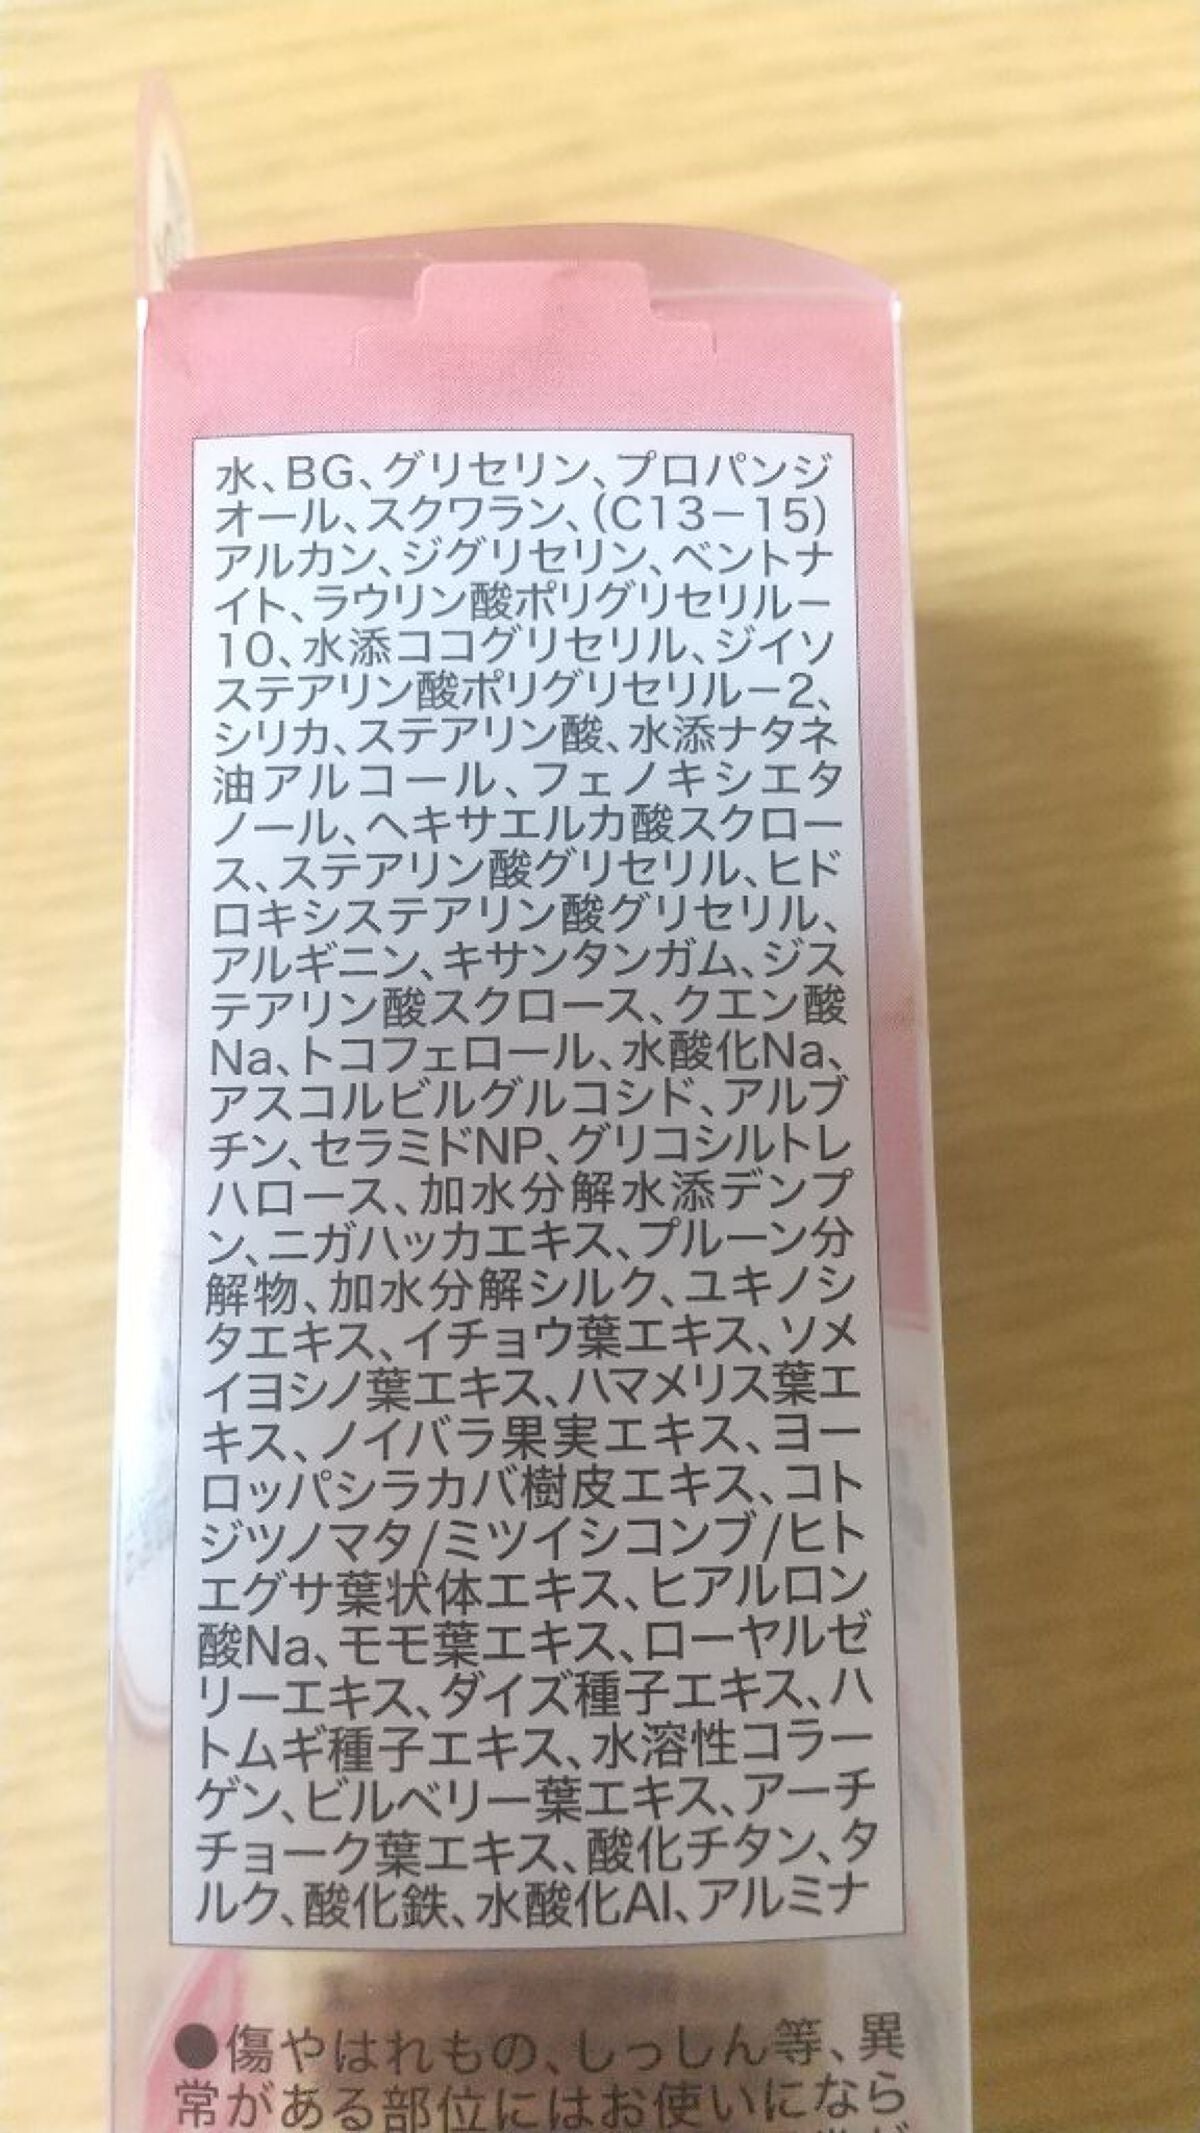 水、BG、グリセリン、プロパンジ
オール、スクワラン、(C13－15)
アルカン、ジグリセリン、ベントナ
イト、ラウリン酸ポリグリセリルー
10、水添ココグリセリル、ジイソ
ステアリン酸ポリグリセリルー2、
シリカ、ステアリン酸、水添ナタネ
油アルコール、フェノキシエタ
ノール、ヘキサエルカ酸スクロー
ス、ステアリン酸グリセリル、ヒド
ロキシステアリン酸グリセリル、
アルギニン、キサンタンガム、ジス
テアリン酸スクロース、クエン酸
Na、トコフェロール、水酸化Na、
アスコルビルグルコシド、アルブ
チン、セラミドNP、グリコシルトレ
ハロース、加水分解水添デンプ
ン、ニガハッカエキス、プルーン分
解物、加水分解シルク、ユキノシ
タエキス、イチョウ葉エキス、ソメ
イヨシノ葉エキス、ハマメリス葉エ
キス、ノイバラ果実エキス、ヨー
ロッパシラカバ樹皮エキス、コト
ジツノマタ/ミツイシコンブ/ヒト
エグサ葉状体エキス、ヒアルロン
酸Na、モモ葉エキス、ローヤルゼ
リーエキス、ダイズ種子エキス、ハ
トムギ種子エキス、水溶性コラー
ゲン、ビルベリー葉エキス、アーチ
チョーク葉エキス、酸化チタン、タ
ルク、酸化鉄、水酸化Al、アルミナ
●傷やはれもの、しっしん等、異
常がある部位にはお使いになら